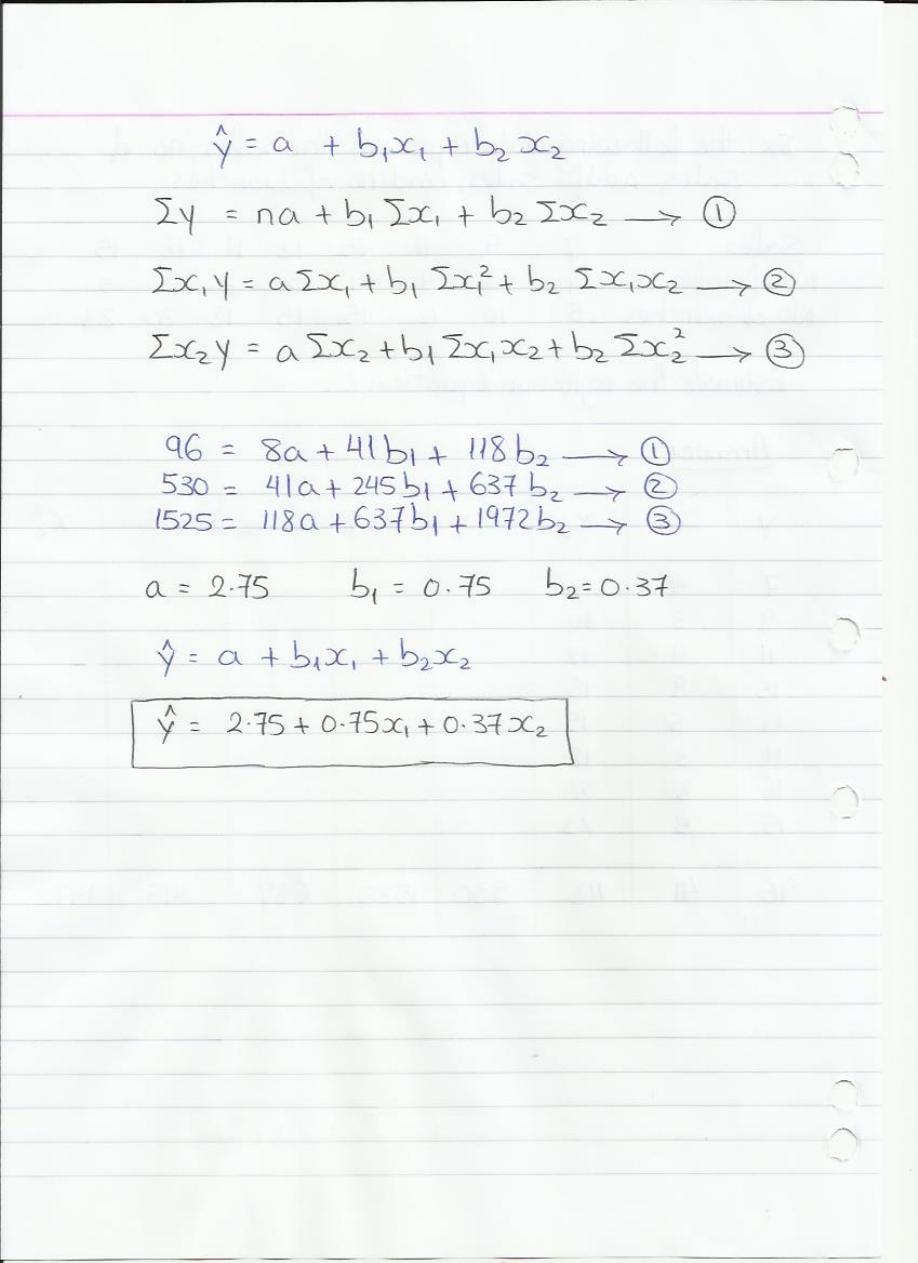 ŷ = a + b₁x₁ + b₂x₂
Σy = na + b₁ Σx₁ + b₂ Σx₂ → ①
Σx₁y = a Σx₁ + b₁ Σx₁² + b₂ Σx₁x₂ → ②
Σx₂y = a Σx₂ + b₁ Σx₁x₂ + b₂ Σx₂² → ③
96 = 8a + 41b₁ + 118b₂ → ①
530 = 41a + 245b₁ + 637b₂ → ②
1525 = 118a + 637b₁ + 1972b₂ → ③
a = 2.75 b₁ = 0.75 b₂ = 0.37
ŷ = a + b₁x₁ + b₂x₂
ŷ = 2.75 + 0.75x₁ + 0.37x₂